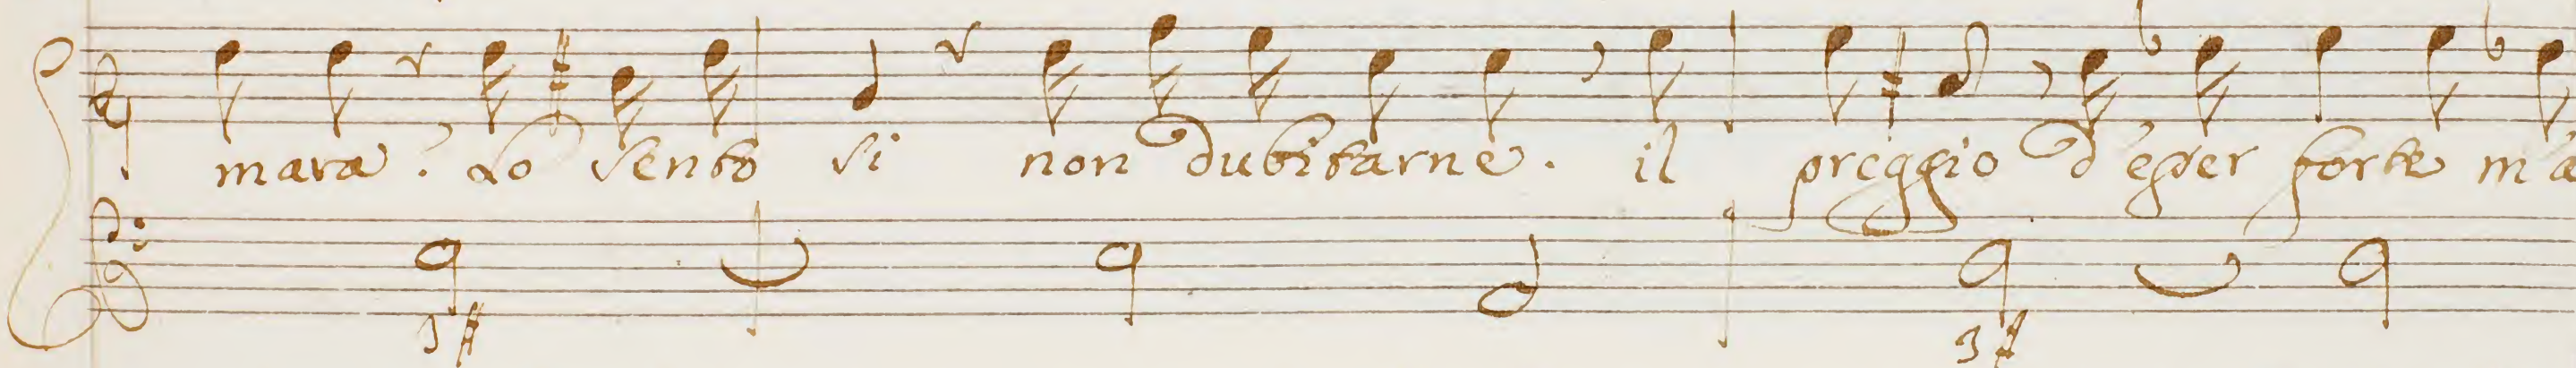 mara? Lo sento si non dubitarne. il preggio d'esser forte m'à
3# 3#